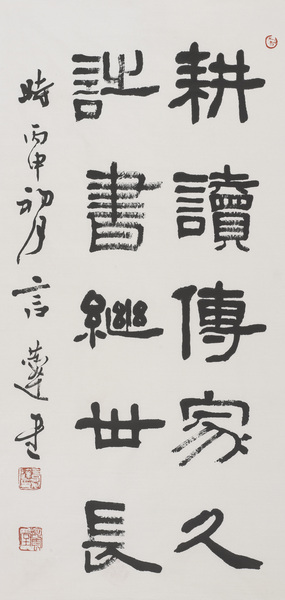 耕讀傳家久
詩書繼世長
時丙申初月言蓮書